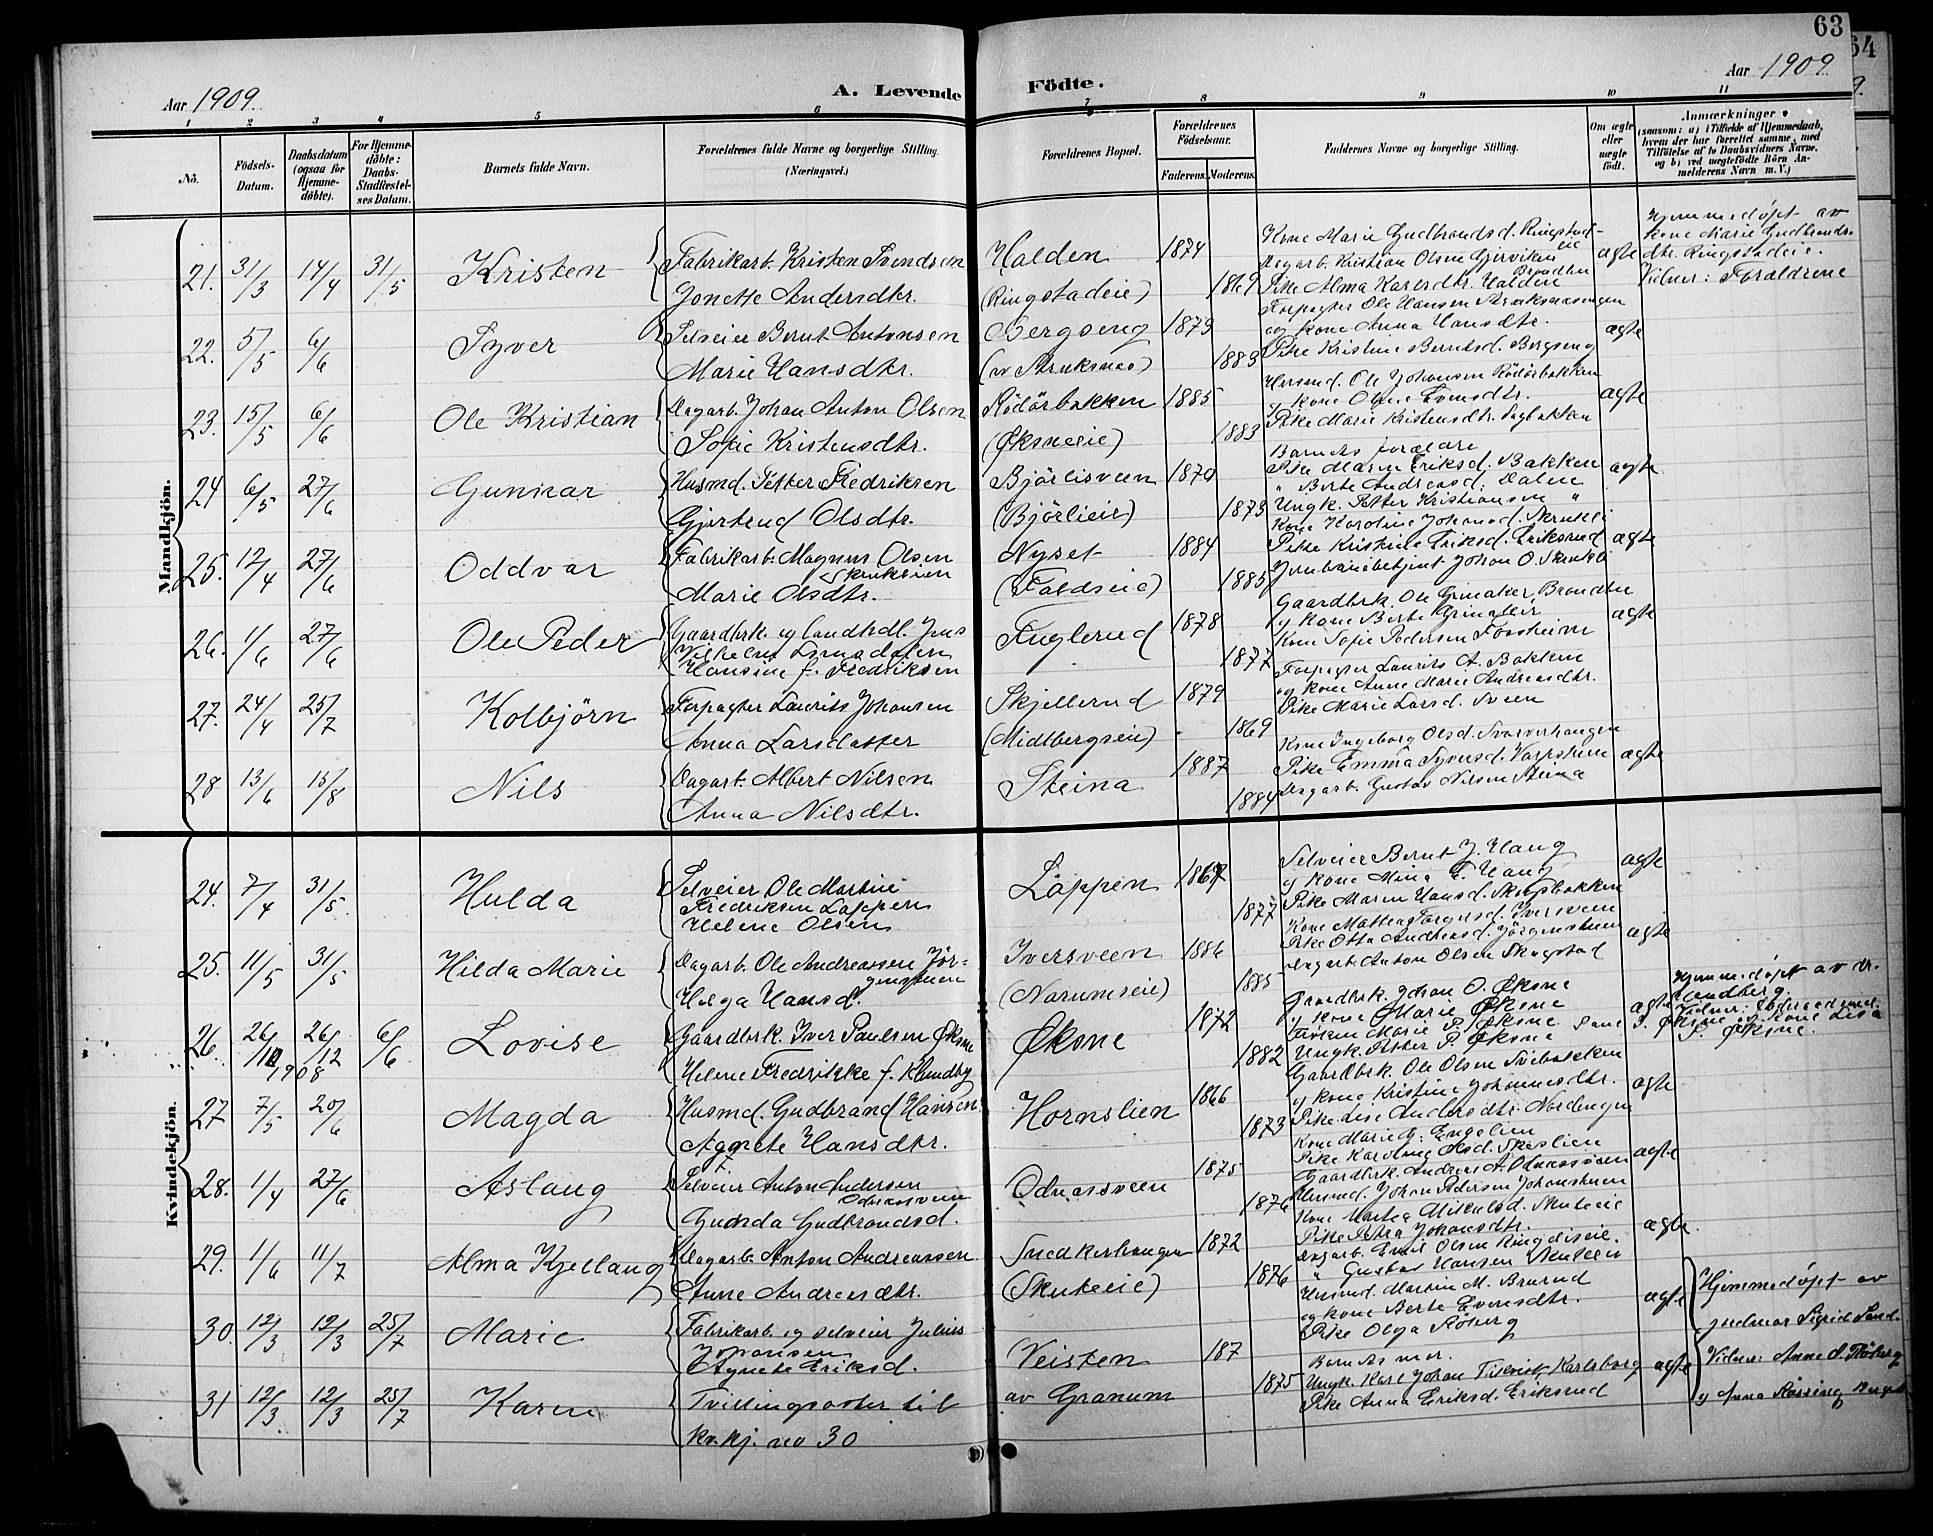 63
64
Aar 1909.
A. Levende
Födte.
Aar 1909.
1 2 3 4 5 6 7 8 9 10 11
No.
Födsels-Datum.
Daabsdatum (ogsaa for Hjemme-döbte).
For Hjemme-döbte: Daabs-Stadfæstel-ses Datum.
Barnets fulde Navn.
Forældrenes fulde Navne og borgerlige Stilling.
(Næringsvei.)
Forældrenes Bopæl.
Forældrenes Födselsaar.
Faderens. Moderens.
Faddernes Navne og borgerlige Stilling.
Om ægte eller uægte födt.
Anmærkninger
(saasom: a) i Tilfælde af Hjemmedaab, hvem der har forrettet samme, med Tilföielse af to Daabsvidners Navne, og b) ved uægtefödte Börn Anmelderens Navn m. V.)
Mandkjön.
21. 31/3 14/4 31/5 Kristen
Fabrikarb. Kristen Svendsen
Jonette Andersdtr.
Halden
(Ringstadeie)
1874 1869
Kone Marie Gudbrandsd. Ringstad-
eie
Dagarb. Kristian Olsen Gjerviken
Pike Alma Karlsdtr. Halden
ægte
Hjemmedøpt av
kone Marie Gudbrands-
dtr. Ringstadeie.
Vidner: Forældrene
22. 5/5 6/6 Syver
Selveier Bernt Antonsen
Marie Hansdtr.
Bergseng
1879 1883
Forpagter Ole Hansen
og kone Anna Hansdtr.
Pike Kristine Berntsd. Bergseng
ægte
23. 15/5 6/6 Ole Kristian
Dagarb. Johan Anton Olsen
Sofie Kristensdtr.
Rödörbakken
(Øksneeie)
1885 1883
Husmd. Ole Johansen Rödörbakken
og kone Oline Evensdtr.
Pike Marie Kristensdtr. Sagbakken
ægte
24 6/5 27/6 Gunnar
Husmd. Petter Fredriksen
Gjertrud Olsdtr.
Björlisveen
(Björlieie)
1870 1873
Barnets forældre
Pike Maren Eriksd. Bakken
" Berte Andreasd. Dalen
Ungk. Petter Kristiansen "
ægte
25. 12/4 27/6 Oddvar
Fabrikarb. Magnus Olsen
Marie Olsdtr.
Nyset
(Faldseie)
1884 1885
Kone Karoline Johansd. Skrukli
Pike Kristine Eriksd. Eriksrud
Jernbanebetjent Johan O. Skrukli
ægte
26. 1/6 27/6 Ole Peder
Gaardbrk. og landhdl. Jens
Hansine f. Fredriksen
Fuglerud
1878 1877
Gaardbrk. Ole Grinaker, Brandbu
og kone Berte Grinaker
Kone Sofie Pedersen Fossheim
ægte
27. 24/4 25/7 Kolbjörn
Forpagter Laurits Johansen
Anna Larsdatter
Skjellerud
(Midtbergseie)
1879 1869
Forpagter Laurits A. Bakken
og kone Anne Marie Andreasdtr.
Pike Marie Larsd. Sveen
28 13/6 15/8 Nils
Dagarb. Albert Nilsen
Anna Nilsdtr.
Steina
1887 1884
Kone Ingeborg Olsd. Svarverhaugen
Pike Emma Syversd. Varpstuen
Dagarb. Gustav Nilsen Steina
ægte
Kvindekjön.
24. 7/4 31/5 Hulda
Selveier Ole Martin
Fredriksen Lappen
Helene Olsen
Lappen
1867 1877
Selveier Bernt J. Haug
og kone Mina E. Haug
Pike Maren Hansd. Skogsbakken
ægte
25. 11/5 31/5 Hilda Marie
Dagarb. Ole Andreassen Jör-
genstuen
Helga Hansd.
Iversveen
(Narumseie)
1886 1885
Kone Mathea Torgersd. Iversveen
Pike Otta Andreasd. Jörgenstuen
Dagarb. Anton Olsen Skogstad
ægte
26. 26/10 1908 26/12 6/6 Lovise
Gaardbrk. Iver Paulsen Øksne
Helene Fredrikke f. Klundby
Øksne
1872 1882
Gaardbrk. Johan O. Øksne
og kone Marie Øksne
Frøken Marie P. Øksne
Ungk. Petter P. Øksne
ægte
Hjemmedøpt av dr.
P. Øksne og kone Lisa
P. Øksne.
27 7/5 20/6 Magda
Husmd. Gudbrand Hansen
Agnete Hansdtr.
Hornslien
1866 1873
Gaardbrk. Ole Olsen Sviebakken
og kone Kristine Johannesdtr.
Pike Lise Andersdtr. Nordengen
ægte
28. 1/4 27/6 Aslaug
Selveier Anton Andersen
Odnessveen
Gunda Gudbrandsd.
Odnessveen
1875 1876
Kone Marie G. Engelien
Pike Karoline Olsd. Skeslien
Gaardbrk. Andreas A. Odnessveen
ægte
29. 1/6 11/7 Alma Kjellaug
Dagarb. Anton Andreassen
Anne Andreasdtr.
Snedkerhaugen
(Skuteeie)
1872 1876
Husmd. Johan Pedersen Johanstuen
Kone Mathea Mikkelsd. Skuteeie
Pike Petra Johansdtr.
Dagarb. Emil Olsen Ringdiseie.
" Gustav Hansen Skuteeie
ægte.
30. 12/3 12/3 25/7 Marie
Fabrikarb. og selveier Julius
Johansen
Agnete Eriksd.
Veisten
187
Husmd. Martin M. Brurud
og kone Berte Evensdtr.
Pike Olga Röberg
ægte
Hjemmedøpt av
jordmor Sigrid Sand.
31 12/3 12/3 25/7 Karen
Tvillingsøster til
kv.kj. no 30
av Granum
1875
Barnets mor.
Ungk. Karl Johan Karlsborg
Pike Anna Eriksd. Eriksrud
ægte
Vidner: Anne S. Röberg